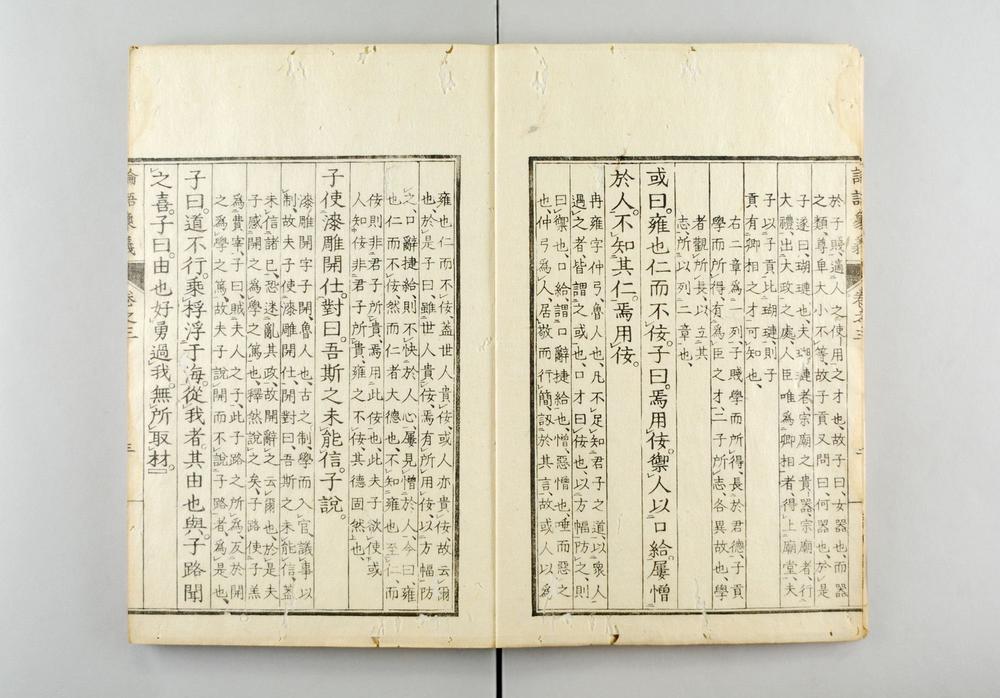 論語象義 卷之三 二
於子賤適人之使用之才也、故子曰、女器也、而器
之類尊卑大小不等、故子貢又問曰、何器也、於是
子遂曰、瑚璉也、夫瑚璉者、宗廟之貴器、宗廟者、行
大禮出大政之處、人臣唯爲卿相者、得上廟堂、夫
子以子貢比瑚璉、則子
貢有卿相之才可知也、
右二章爲一列、子賤學而所得、長於君德、子貢
學而所得、有爲臣之才、二子所志、各異故也、學
者觀所長、以立其
志、所以列二章也、
或曰。雍也仁而不佞。子曰。焉用佞。禦人以口給。屢憎
於人。不知其仁。焉用佞。
冉雍字仲弓、魯人也、凡不足知君子之道、以衆人
遇之者、皆謂之或也、口才曰佞也、以方幅防之、則
曰禦也、口給謂口辭捷給也、憎、惡憎也、唾而惡之
也、仲弓爲人、居敬而行簡、訒於其言、故或人以爲
雍也仁而不佞、蓋世人貴佞、或人亦貴佞、故云爾
也、於是子曰、雖世人貴佞、焉有所用佞、以方幅防
之、口辭捷給、則不快於人心、屢見憎於人、今曰、雍
也仁而不佞、然而仁者大德也、不知雍也至仁、而
佞則非君子所貴、焉用此佞也、此夫子欲使或
人知佞非君子所貴、雍之不佞其德固然也、
子使漆雕開仕。對曰。吾斯之未能信。子說。
漆雕開字子開、魯人也、古之制、學而入官、議事以
制、故夫子使漆雕開仕、開對曰、吾斯之未能信、蓋
未信諸已、恐迷亂其政、故開辭之云爾也、於是夫
子感開之爲學之篤也、釋然說之矣、子路使子羔
爲費宰、子曰、賊夫人之子、此子路之所爲、反於開
之爲學之篤、故夫子說開而不說子路者、爲是也、
子曰。道不行。乘桴浮于海。從我者。其由也與。子路聞
之喜。子曰。由也好勇過我。無所取材。
論語象義 卷之三 三